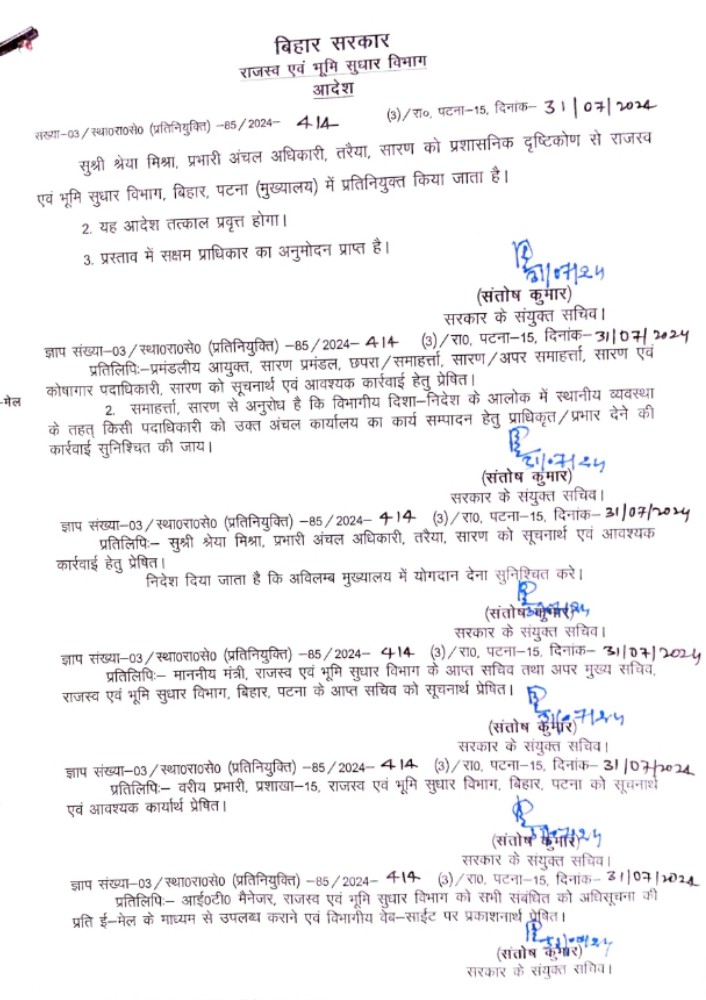 बिहार सरकार
राजस्व एवं भूमि सुधार विभाग
आदेश
संख्या-03/स्था०रा०से० (प्रतिनियुक्ति) -85/2024- 414 (3)/रा०, पटना-15, दिनांक- 31/07/2024
सुश्री श्रेया मिश्रा, प्रभारी अंचल अधिकारी, तरैया, सारण को प्रशासनिक दृष्टिकोण से राजस्व
एवं भूमि सुधार विभाग, बिहार, पटना (मुख्यालय) में प्रतिनियुक्त किया जाता है।
2. यह आदेश तत्काल प्रवृत्त होगा।
3. प्रस्ताव में सक्षम प्राधिकार का अनुमोदन प्राप्त है।
31/07/24
(संतोष कुमार)
सरकार के संयुक्त सचिव।
ज्ञाप संख्या-03/स्था०रा०से० (प्रतिनियुक्ति) -85/2024- 414 (3)/रा०, पटना-15, दिनांक- 31/07/2024
प्रतिलिपिः-प्रमंडलीय आयुक्त, सारण प्रमंडल, छपरा/समाहर्त्ता, सारण/अपर समाहर्त्ता, सारण एवं
कोषागार पदाधिकारी, सारण को सूचनार्थ एवं आवश्यक कार्रवाई हेतु प्रेषित।
-मेल
2. समाहर्त्ता, सारण से अनुरोध है कि विभागीय दिशा-निदेश के आलोक में स्थानीय व्यवस्था
के तहत् किसी पदाधिकारी को उक्त अंचल कार्यालय का कार्य सम्पादन हेतु प्राधिकृत/प्रभार देने की
कार्रवाई सुनिश्चित की जाय।
31.07.24
(संतोष कुमार)
सरकार के संयुक्त सचिव।
ज्ञाप संख्या-03/स्था०रा०से० (प्रतिनियुक्ति) -85/2024- 414 (3)/रा०, पटना-15, दिनांक- 31/07/2024
प्रतिलिपिः- सुश्री श्रेया मिश्रा, प्रभारी अंचल अधिकारी, तरैया, सारण को सूचनार्थ एवं आवश्यक
कार्रवाई हेतु प्रेषित।
निदेश दिया जाता है कि अविलम्ब मुख्यालय में योगदान देना सुनिश्चित करे।
(संतोष कुमार)
सरकार के संयुक्त सचिव।
ज्ञाप संख्या-03/स्था०रा०से० (प्रतिनियुक्ति) -85/2024- 414 (3)/रा०, पटना-15, दिनांक- 31/07/2024
प्रतिलिपिः- माननीय मंत्री, राजस्व एवं भूमि सुधार विभाग के आप्त सचिव तथा अपर मुख्य सचिव,
राजस्व एवं भूमि सुधार विभाग, बिहार, पटना के आप्त सचिव को सूचनार्थ प्रेषित।
(संतोष कुमार)
सरकार के संयुक्त सचिव।
ज्ञाप संख्या-03/स्था०रा०से० (प्रतिनियुक्ति) -85/2024- 414 (3)/रा०, पटना-15, दिनांक- 31/07/2024
प्रतिलिपिः- वरीय प्रभारी, प्रशाखा-15, राजस्व एवं भूमि सुधार विभाग, बिहार, पटना को सूचनार्थ
एवं आवश्यक कार्यार्थ प्रेषित।
(संतोष कुमार)
सरकार के संयुक्त सचिव।
ज्ञाप संख्या-03/स्था०रा०से० (प्रतिनियुक्ति) -85/2024- 414 (3)/रा०, पटना-15, दिनांक- 31/07/2024
प्रतिलिपिः- आई०टी० मैनेजर, राजस्व एवं भूमि सुधार विभाग को सभी संबंधित को अधिसूचना की
प्रति ई-मेल के माध्यम से उपलब्ध कराने एवं विभागीय वेब-साईट पर प्रकाशनार्थ प्रेषित।
(संतोष कुमार)
सरकार के संयुक्त सचिव।